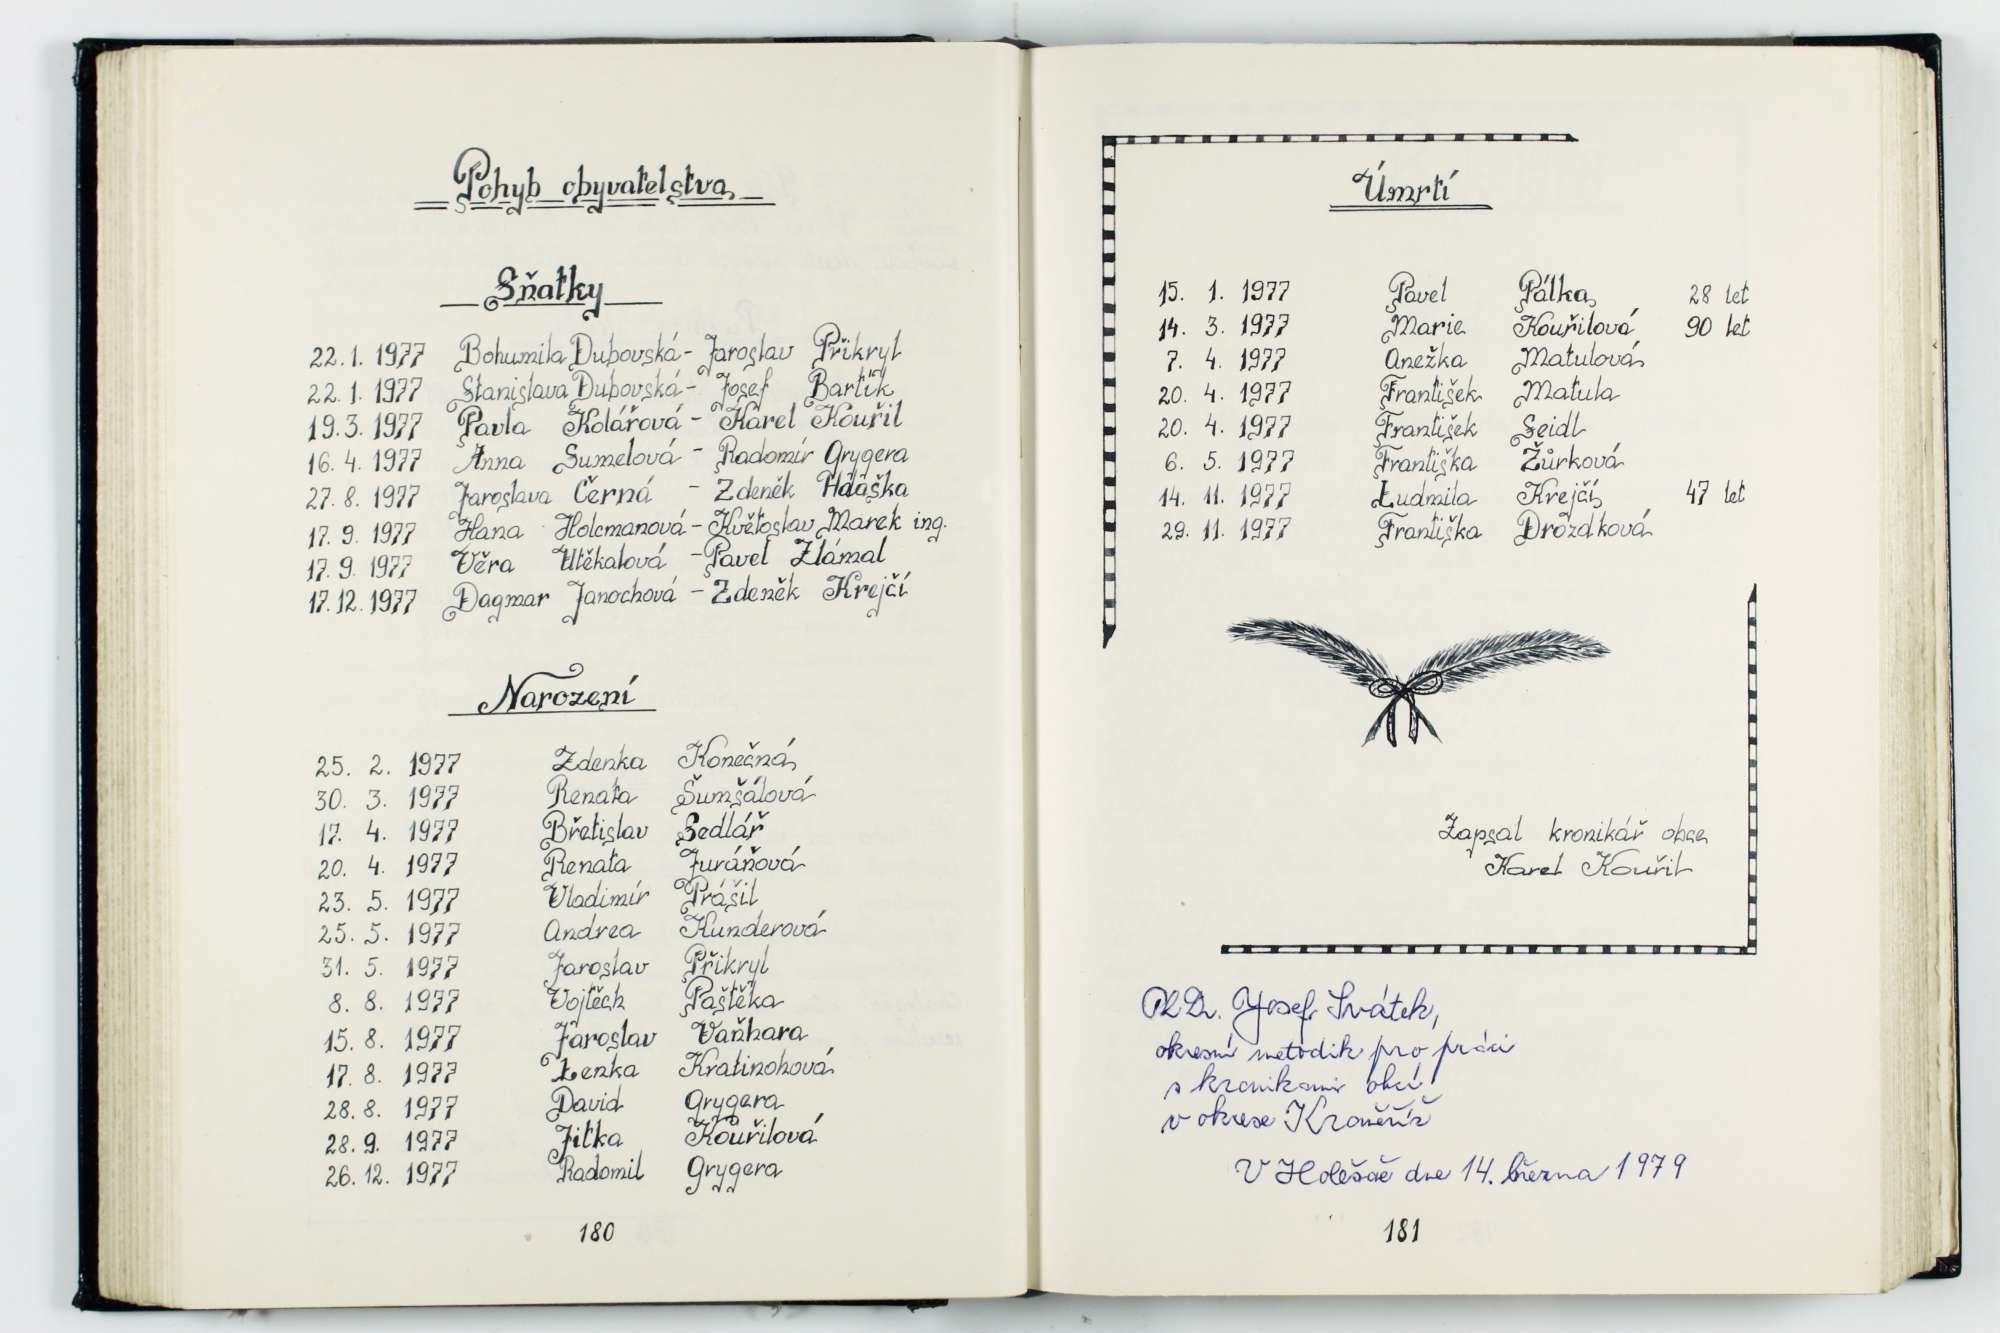 Pohyb obyvatelstva
Sňatky
22. 1. 1977 Bohumila Dubovská - Jaroslav Přikryl
22. 1. 1977 Stanislava Dubovská - Josef Bartík
19. 3. 1977 Pavla Kolářová - Karel Kouřil
16. 4. 1977 Anna Sumelová - Radomír Grygera
27. 8. 1977 Jaroslava Černá - Zdeněk
17. 9. 1977 Hana Holcmanová - Květoslav Marek ing.
17. 9. 1977 Věra Utěkalová - Pavel Zlámal
17. 12. 1977 Dagmar Janochová - Zdeněk Krejčí
Narození
25. 2. 1977 Zdenka Konečná
30. 3. 1977 Renata Šumšálová
17. 4. 1977 Břetislav Sedlář
20. 4. 1977 Renata Juráňová
23. 5. 1977 Vladimír Prášil
25. 5. 1977 Andrea Kunderová
31. 5. 1977 Jaroslav Přikryl
8. 8. 1977 Vojtěch Paštěka
15. 8. 1977 Jaroslav Vaňhara
17. 8. 1977 Lenka Kratinohová
28. 8. 1977 David Grygera
28. 9. 1977 Jitka Kouřilová
26. 12. 1977 Radomil Grygera
180
Úmrtí
15. 1. 1977 Pavel Pálka 28 let
14. 3. 1977 Marie Kouřilová 90 let
7. 4. 1977 Anežka Matulová
20. 4. 1977 František Matula
20. 4. 1977 František Seidl
6. 5. 1977 Františka Žůrková
14. 11. 1977 Ludmila Krejčí 47 let
29. 11. 1977 Františka Drózdková
Zapsal kronikář obce
Karel Kouřil
PhDr. Josef Svátek,
okresní metodik pro práci
s kronikami obcí
v okrese Kroměříž
V Holešově dne 14. března 1979
181